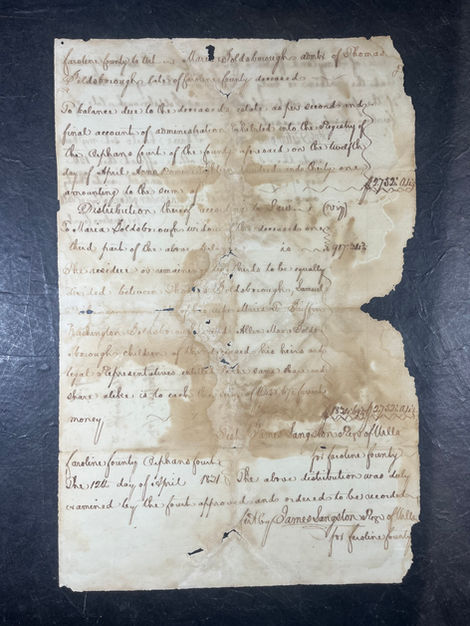 Caroline County to Wit Maria Goldsborough admx of Thomas
Goldsborough late of Caroline County deceased
To balance due to the deceaseds estate as per second and
final account of administration exhibited into the Registry of
the Orphans Court of the County aforesaid on the twelfth
day of April Anno Domini thirty one
amounting to the sum of
Distribution thereof according to Law (viz)
To Maria Goldsborough widow of the deceased one
third part of the above is
The residue or remaining two thirds to be equally
divided between Goldsborough, Samuel
of his wife Griffin
Washington Goldsborough and Allen Golds
=borough children of the deceased his heirs and
legal Representatives entitled to the same share and
share alike is to each the sum of
money
Test James Langston Regr of Wills
for Caroline County
Caroline County Orphans Court
The 12th day of April 1831 The above distribution was duly
examined by the Court approved and ordered to be recorded
Test by James Langston Regr of Wills
for Caroline County